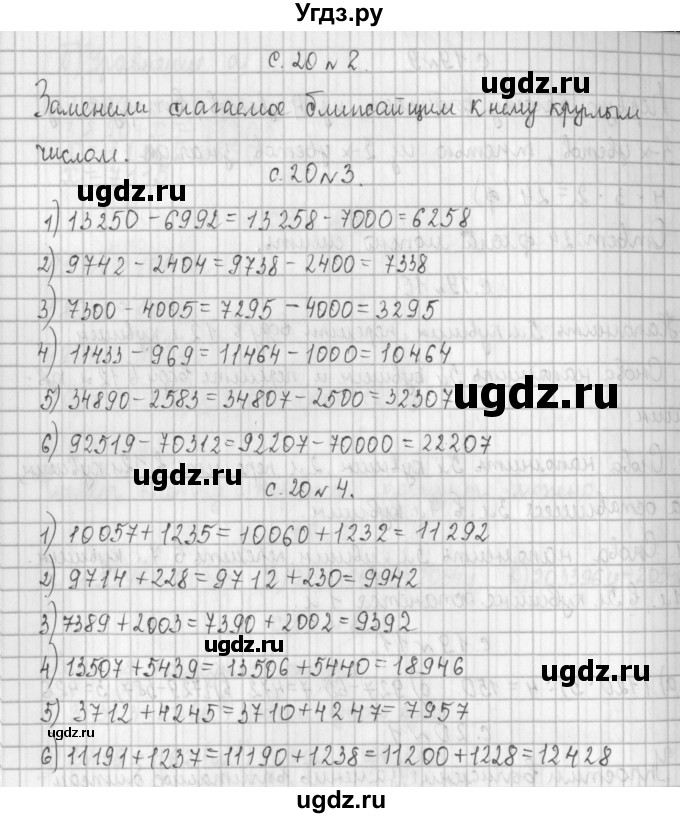 Угдз.ру
с. 20 № 2.
Заменили слагаемое ближайщим к нему круглым
числом.
с. 20 № 3.
1) 13250 - 6992 = 13258 - 7000 = 6258
2) 9742 - 2404 = 9738 - 2400 = 7338
3) 7300 - 4005 = 7295 - 4000 = 3295
4) 11433 - 969 = 11464 - 1000 = 10464
5) 34890 - 2583 = 34807 - 2500 = 32307
6) 92519 - 70312 = 92207 - 70000 = 22207
с. 20 № 4.
1) 10057 + 1235 = 10060 + 1232 = 11292
2) 9714 + 228 = 9712 + 230 = 9942
3) 7389 + 2003 = 7390 + 2002 = 9392
4) 13507 + 5439 = 13506 + 5440 = 18946
5) 3712 + 4245 = 3710 + 4247 = 7957
6) 11191 + 1237 = 11190 + 1238 = 11200 + 1228 = 12428
ugdz.ru
ugdz.ru
ugdz.ru
ugdz.ru
ugdz.ru
ugdz.ru
ugdz.ru
ugdz.ru
ugdz.ru